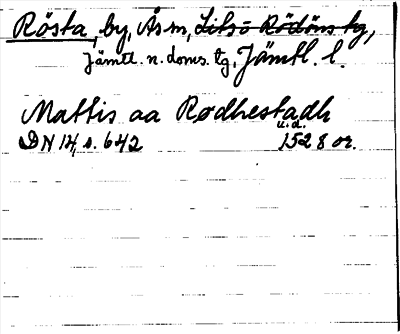 Rösta, by, Ås sn, Litsö Rödöns tg,
Jämtl. n. doms. tg, Jämtl. l.
Mattis aa Rødhestadh
u.d.
DN 14, s. 642 1528 or.